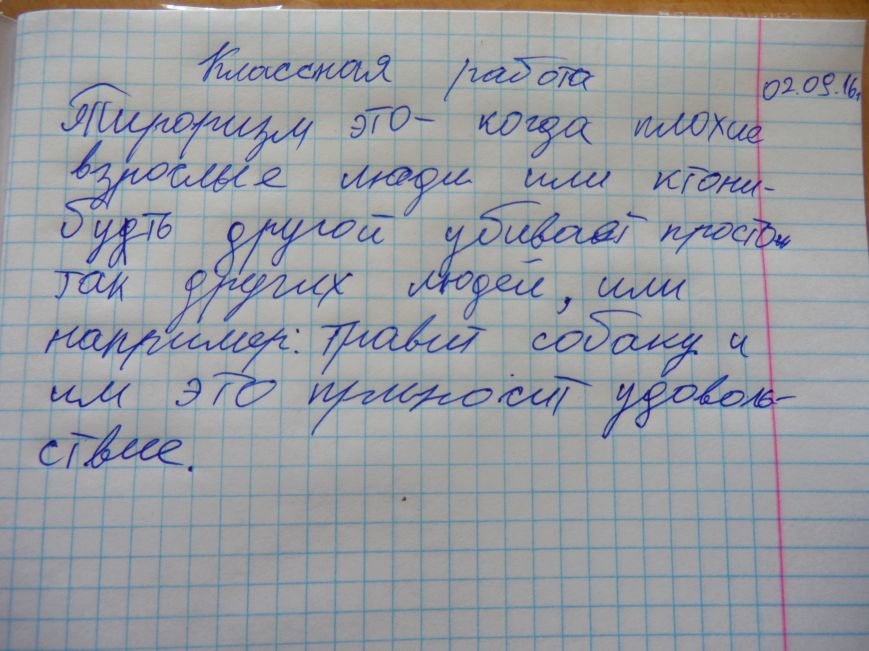 Классная работа
02.09.16г
Тироризм это- когда плохие
взрослые люди или ктони-
будть другой убивает просто
так других людей, или
например: травит собаку и
им это приносит удоволь-
ствие.